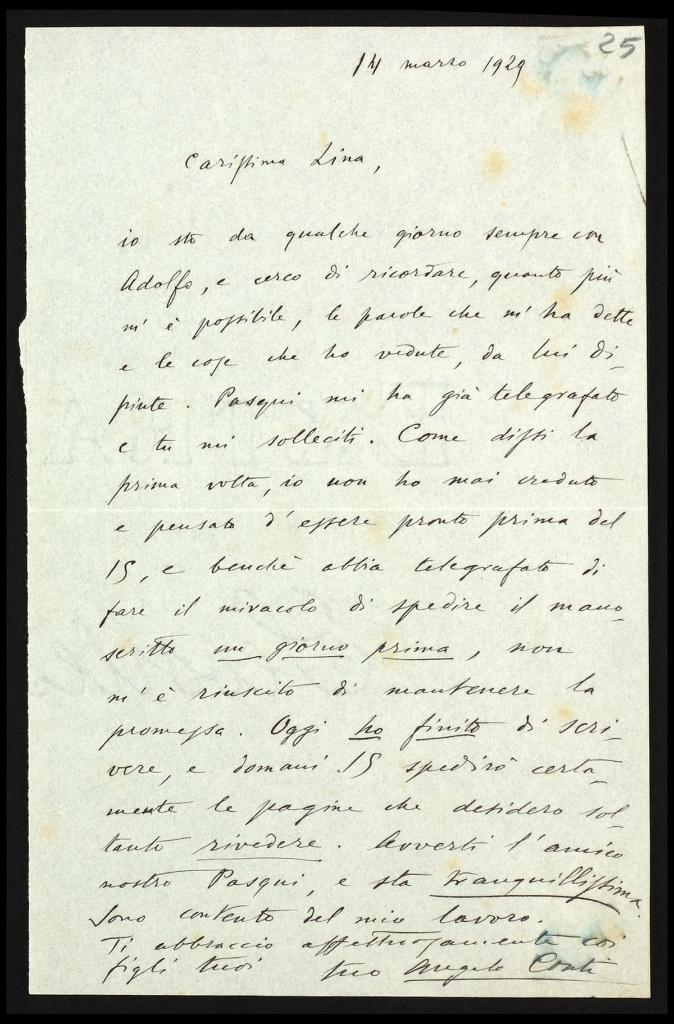 25
14 marzo 1929
Carissima Lina,
io sto da qualche giorno sempre con
Adolfo, e cerco di ricordare, quanto più
m' è possibile, le parole che m' ha dette
e le cose che ho vedute, da lui di-
pinte. Pasqui mi ha già telegrafato
e tu mi solleciti. Come dissi la
prima volta, io non ho mai creduto
e pensato d' essere pronto prima del
15, e benchè abbia telegrafato di
fare il miracolo di spedire il mano-
scritto un giorno prima, non
m' è riuscito di mantenere la
promessa. Oggi ho finito di scri-
vere, e domani 15 spedirò certa-
mente le pagine che desidero sol-
tanto rivedere. Avverti l' amico
nostro Pasqui, e sta tranquillissima.
Sono contento del mio lavoro.
Ti abbraccio affettuosamente coi
figli tuoi tuo Angelo Conti